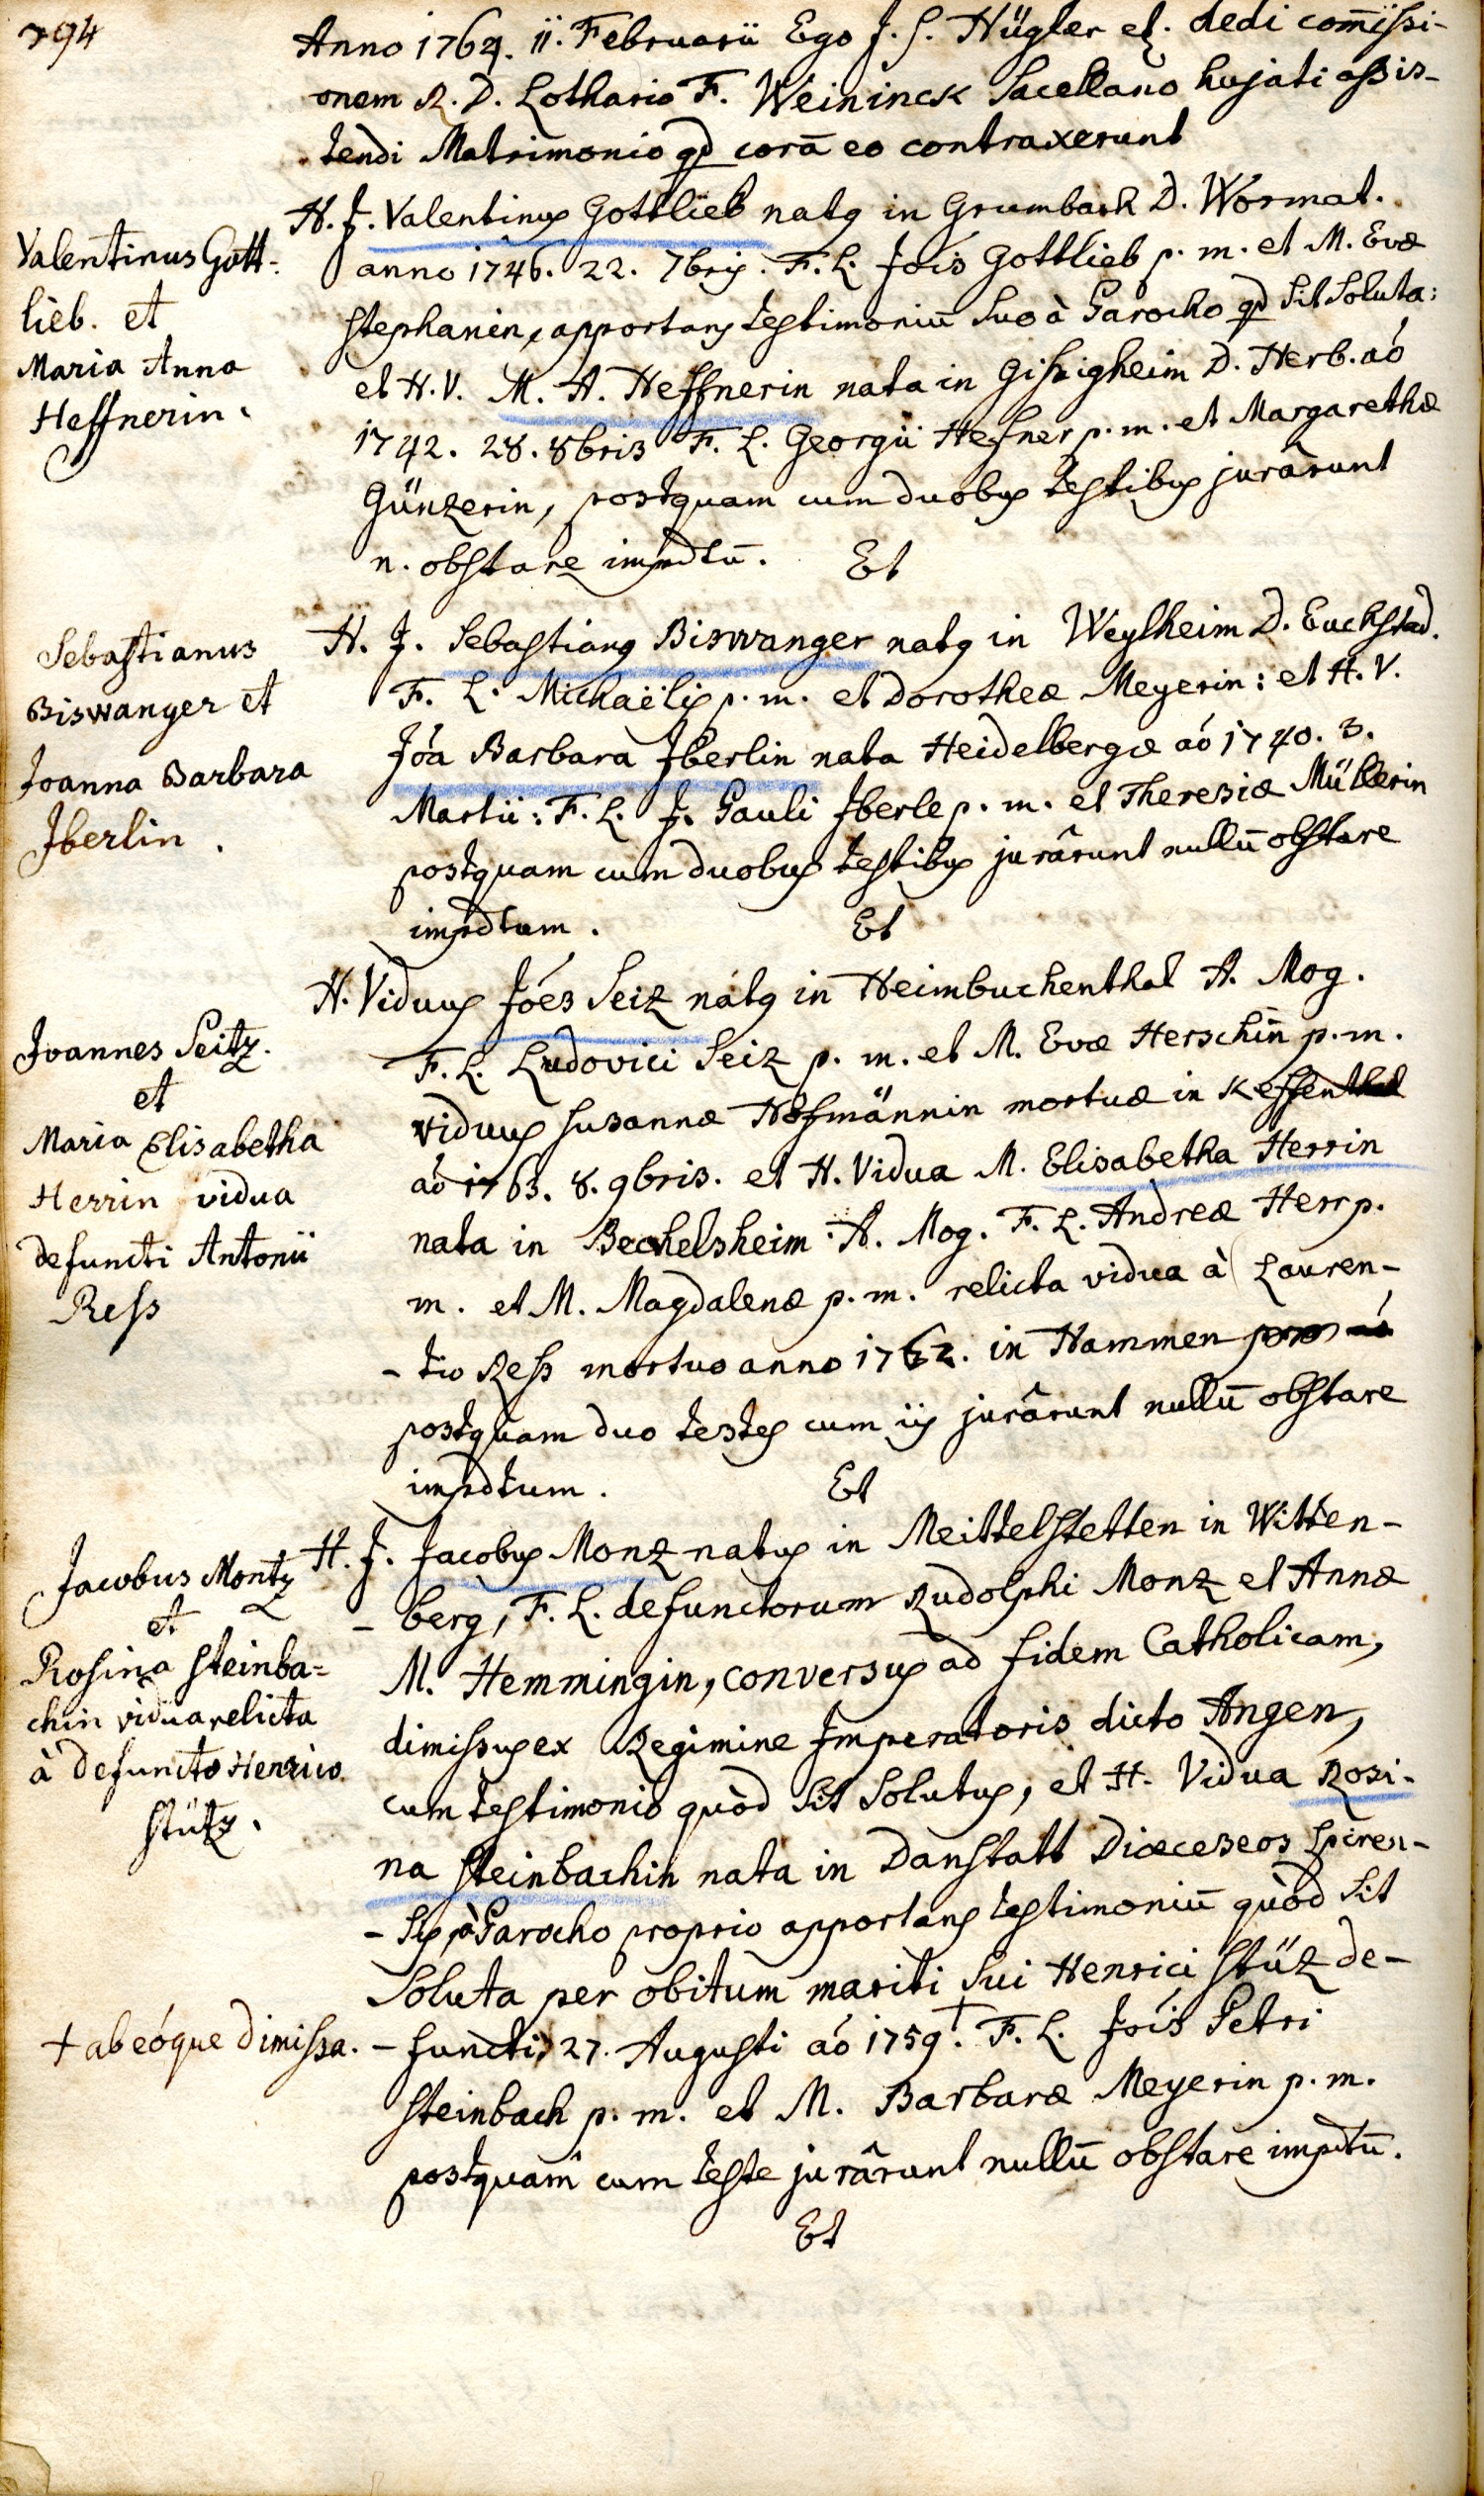 794
Anno 1764. 11. Februarii Ego J. S. Hügler etc. dedi com̄issi-
onem R. D. Lothario F. Weininck Sacellano hujati assis-
tendi Matrimonio qd corā eo contraxerunt
H. J. Valentinus Gottlieb natus in Grumbach D. Wormat.
anno 1746. 22. 7bris. F. L. Jois Gottlieb p. m. et M. Evæ
Stephanin, apportans testimoniū suo à Parocho qd sit soluta:
et H. V. M. A. Heffnerin nata in Gissigheim D. Herb. aó
1742. 28. 8bris F. L. Georgii Hefner p. m. et Margarethæ
Günzerin, postquam cum duobus testibus jurârunt
n. obstare impdtū. Et
Valentinus Gott-
lieb. et
Maria Anna
Heffnerin.
H. J. Sebastianus Biswanger natus in Weylheim D. Euchstad.
F. L. Michaëlis p. m. et Dorotheæ Meyerin: et H. V.
Jóa Barbara Jberlin nata Heidelbergæ aó 1740. 3.
Martii: F. L. J. Pauli Jberle p. m. et Theresiæ Müllerin
postquam cum duobus testibus jurârunt nullū obstare
impdtum. Et
Sebastianus
Biswanger et
Joanna Barbara
Jberlin.
H. Viduus Jóes Seiz natus in Heimbuchenthal A. Mog.
F. L. Ludovici Seiz p. m. et M. Evæ Herschin p. m.
viduus Susannæ Hofmännin mortuæ in
aó 1763. 8. 9bris. et H. Vidua M. Elisabetha Herrin
nata in Bechelsheim A. Mog. F. L. Andreæ Herr p.
m. et M. Magdalenæ p. m. relicta vidua à Lauren-
-tio Ress mortuo anno 1762. in Hammen
postquam duo testes cum iis jurârunt nullū obstare
impdtum. Et
Joannes Seitz.
et
Maria Elisabetha
Herrin vidua
defuncti Antonii
Ress
H. J. Jacobus Monz natus in Meittelstetten in Witten-
-berg, F. L. defunctorum Rudolphi Monz et Annæ
M. Hemmingin, conversus ad fidem Catholicam,
dimissus ex Regimine Imperatoris dicto Angen,
cum testimonio quòd sit solutus, et H. Vidua Rosi-
na Steinbachin nata in Danstatt Diœceseos Spiren-
-sis, à Parocho proprio apportans testimoniū quòd sit
soluta per obitum mariti sui Henrici Stüz de-
-functi, 27. Augusti aó 1759. † F. L. Jois Petri
Steinbach p. m. et M. Barbaræ Meyerin p. m.
postquam cum teste jurârunt nullū obstare impdtū.
Et
Jacobus Montz
et
Rosina Steinba=
chin vidua relicta
à defuncto Henrico
Stütz.
† ab eóque dimissa.